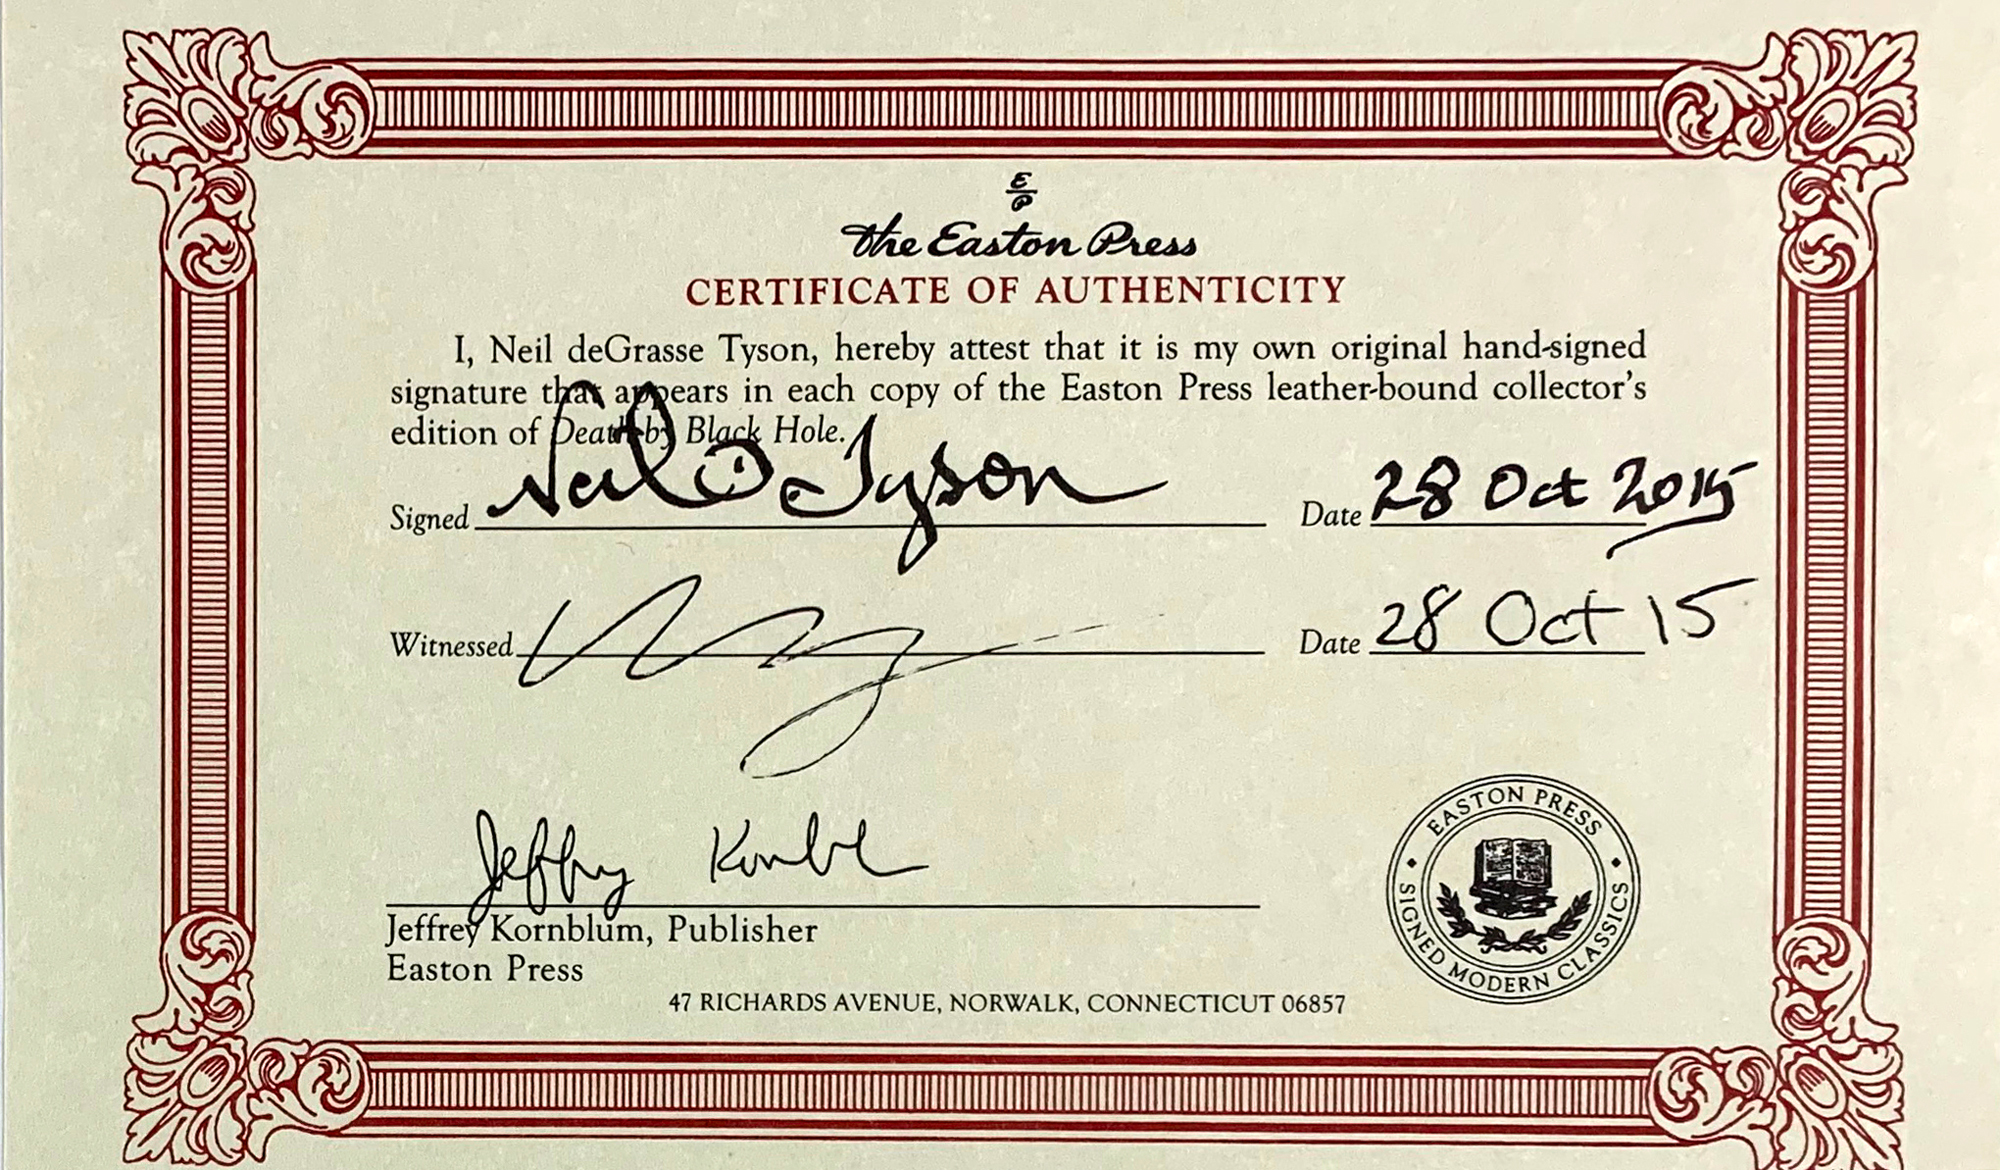 E
P
the Easton Press
CERTIFICATE OF AUTHENTICITY
I, Neil deGrasse Tyson, hereby attest that it is my own original hand-signed
signature that appears in each copy of the Easton Press leather-bound collector's
edition of Death by Black Hole.
Signed Neil D Tyson Date 28 Oct 2015
Witnessed Date 28 Oct 15
Jeffrey Kornblum
Jeffrey Kornblum, Publisher
Easton Press
47 RICHARDS AVENUE, NORWALK, CONNECTICUT 06857
EASTON PRESS
SIGNED MODERN CLASSICS